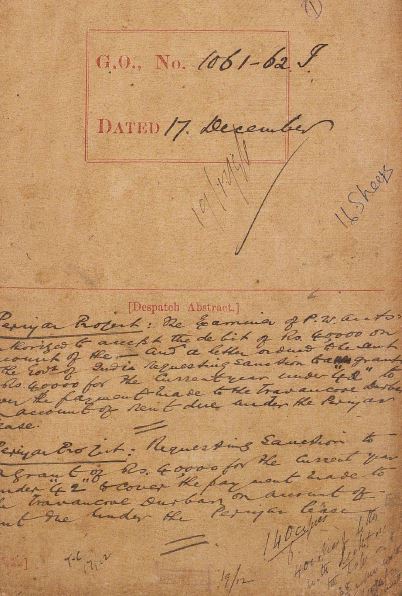 G.O., No. 1061-62 I
DATED 17. December
16 Sheets
[Despatch Abstract.]
Periyar Project: The Examiner of P.W. accts.
to accept the debit of Rs. 40000 on
account of the — and a letter ordered to be sent
the Govt of India requesting sanction to a grant
Rs. 40000 for the current year under "42" to
cover the payment made to the Travancore Durbar
account of rent due under the Periyar
lease.
Periyar Project: Requesting sanction to
a grant of Rs. 40000 for the current year
under "42" to cover the payment made to
Travancore Durbar on account of
rent due under the Periyar lease
140 copies
19/12